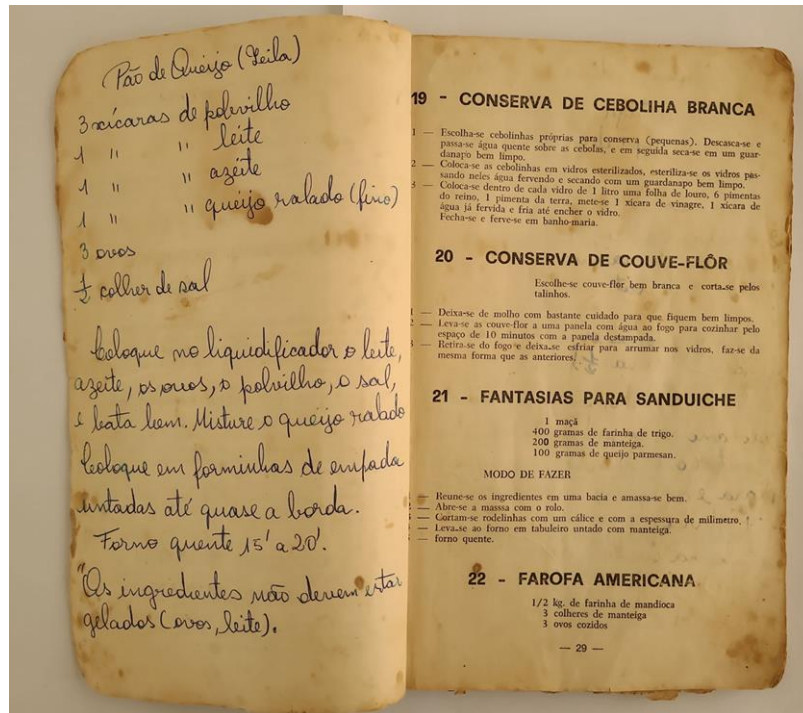 Pão de Queijo (Leila)
3 xícaras de polvilho
1 " " leite
1 " " azeite
1 " " queijo ralado (fino)
3 ovos
1/2 colher de sal
Coloque no liquidificador o leite,
azeite, os ovos, o polvilho, o sal,
e bata bem. Misture o queijo ralado
Coloque em forminhas de empada
untadas até quase a borda.
Forno quente 15' a 20'.
"Os ingredientes não devem estar
gelados (ovos, leite).
19 - CONSERVA DE CEBOLIHA BRANCA
1 — Escolha-se cebolinhas próprias para conserva (pequenas). Descasca-se e
passa-se água quente sobre as cebolas, e em seguida seca-se em um guar-
danapo bem limpo.
2 — Coloca-se as cebolinhas em vidros esterilizados, esteriliza-se os vidros pas-
sando neles água fervendo e secando com um guardanapo bem limpo.
3 — Coloca-se dentro de cada vidro de 1 litro uma folha de louro, 6 pimentas
do reino, 1 pimenta da terra, mete-se 1 xícara de vinagre, 1 xicara de
água já fervida e fria até encher o vidro.
Fecha-se e ferve-se em banho-maria.
20 - CONSERVA DE COUVE-FLÔR
Escolhe-se couve-flor bem branca e corta-se pelos
talinhos.
1 — Deixa-se de molho com bastante cuidado para que fiquem bem limpos.
2 — Leva-se as couve-flor a uma panela com água ao fogo para cozinhar pelo
espaço de 10 minutos com a panela destampada.
3 — Retira-se do fogo e deixa-se esfriar para arrumar nos vidros, faz-se da
mesma forma que as anteriores.
21 - FANTASIAS PARA SANDUICHE
1 maçã
400 gramas de farinha de trigo.
200 gramas de manteiga.
100 gramas de queijo parmesan.
MODO DE FAZER
— Reune-se os ingredientes em uma bacia e amassa-se bem.
— Abre-se a masssa com o rolo.
— Cortam-se rodelinhas com um cálice e com a espessura de milimetro.
— Leva-se ao forno em tabuleiro untado com manteiga.
— forno quente.
22 - FAROFA AMERICANA
1/2 kg. de farinha de mandioca
3 colheres de manteiga
3 ovos cozidos
— 29 —